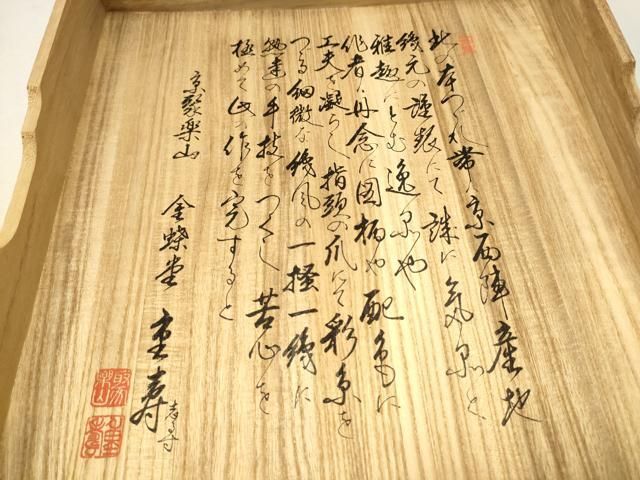 此の本つづれ帯ハ京西陣産地
織元の謹製にて誠に気品と
雅趣にとむ逸品也
作者ハ丹念に図柄や配色に
工夫を凝らし指頭の爪にて彩糸を
つる細微な織風の一掻一織に
熟達の手技をつくし苦心を
極めて此の作を完すると
京聚楽山 金蝶堂 重寿